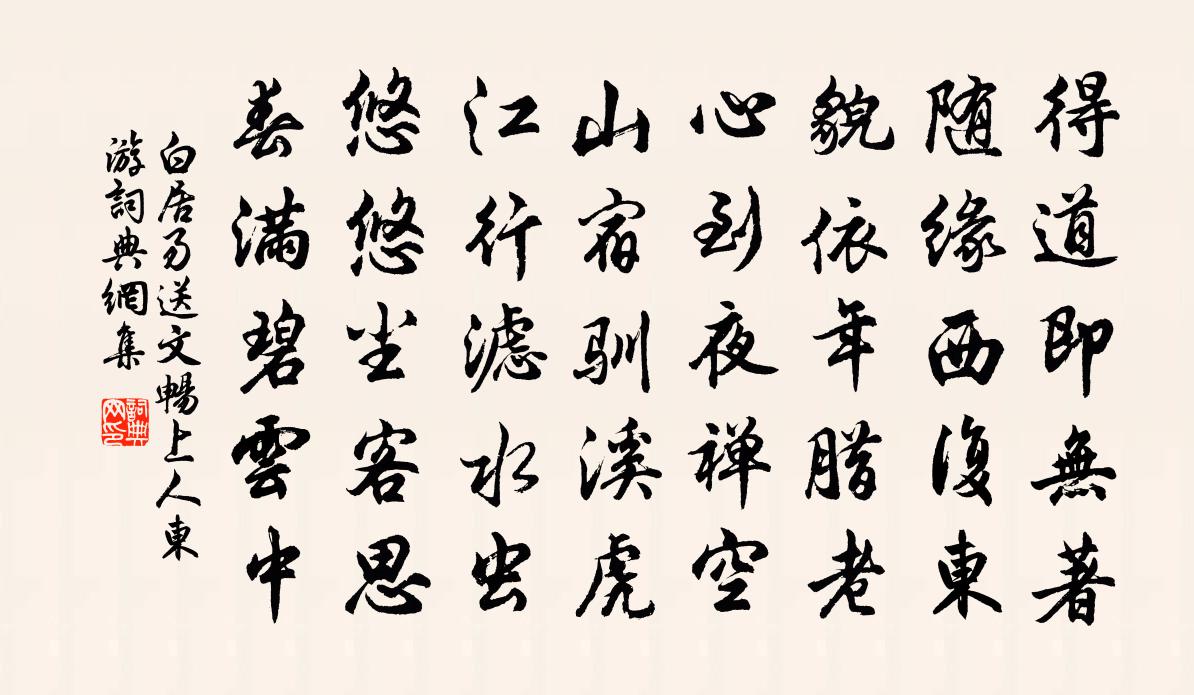 得道即無著
随缘西復東
貌依年腊老
心到夜禅空
山宿馴溪虎
江行滤水虫
悠悠尘客思
春满碧雲中
白居易送文暢上人東
游詞典網集
詞典
网印